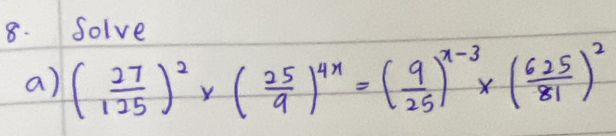 8. Solve
a) (27/125)² × (25/9)⁴ˣ = (9/25)ˣ⁻³ × (625/81)²